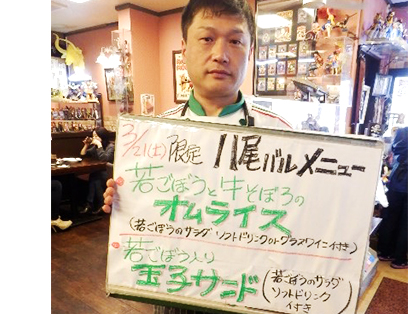 3/21(土)限定 八尾バルメニュー
若ごぼうと牛そぼろの
オムライス
(若ごぼうのサラダ ソフトドリンクorグラスワイン付き)
若ごぼう入り
玉子サンド
(若ごぼうのサラダ
ソフトドリンク
付き)